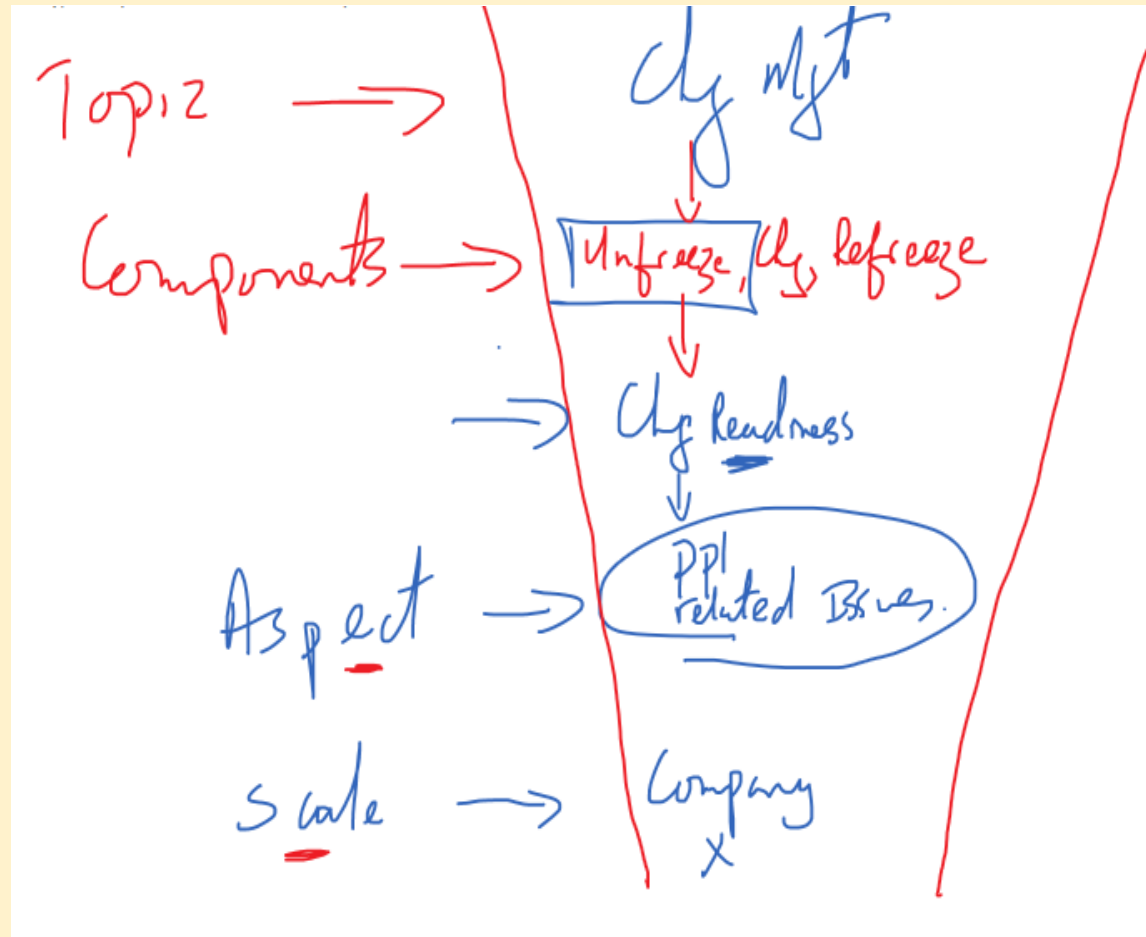 Topic → Chg Mgt
Components → Unfreeze, Chg, Refreeze
→ Chg Readiness
Aspect → PPl
related Issues.
Scale → Company
X